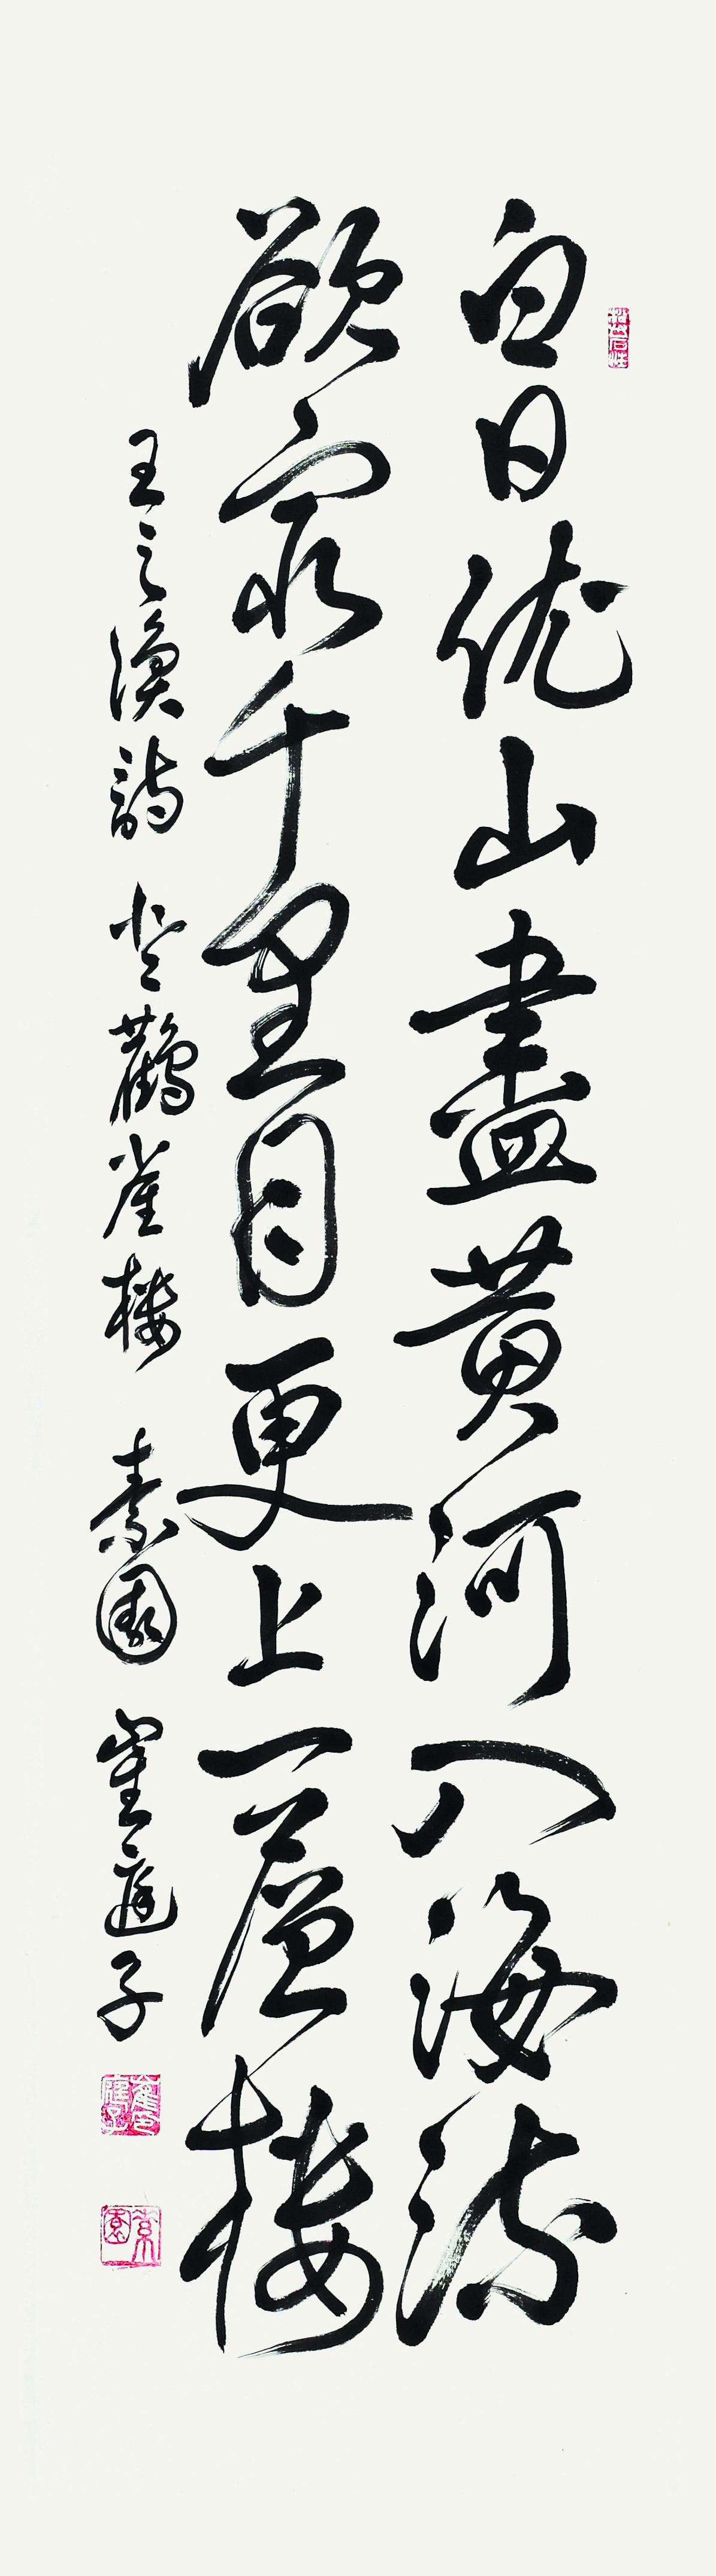 白日依山盡黄河入海流
欲窮千里目更上一層樓
王之渙詩 登鸛雀樓 素園 崔庭子
素園